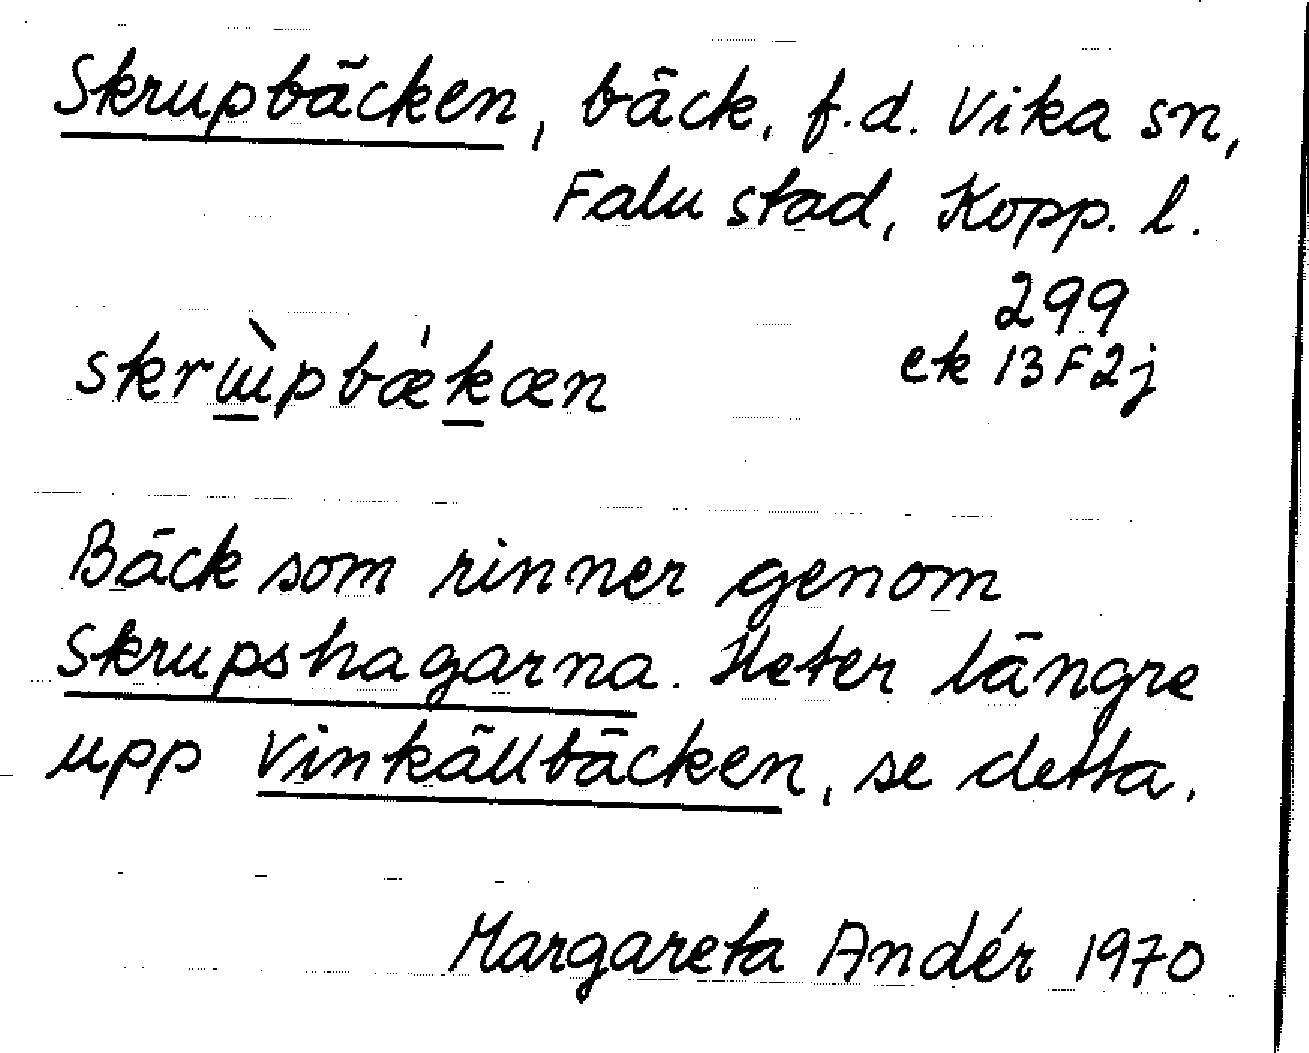 Skrupbäcken, bäck, f.d. Vika sn,
Falu stad, Kopp. l.
299
skrɯ̀pbæ̍kæn ek 13F2j
Bäck som rinner genom
Skrupshagarna. Heter längre
upp Vinkällbäcken, se detta.
Margareta Andér 1970